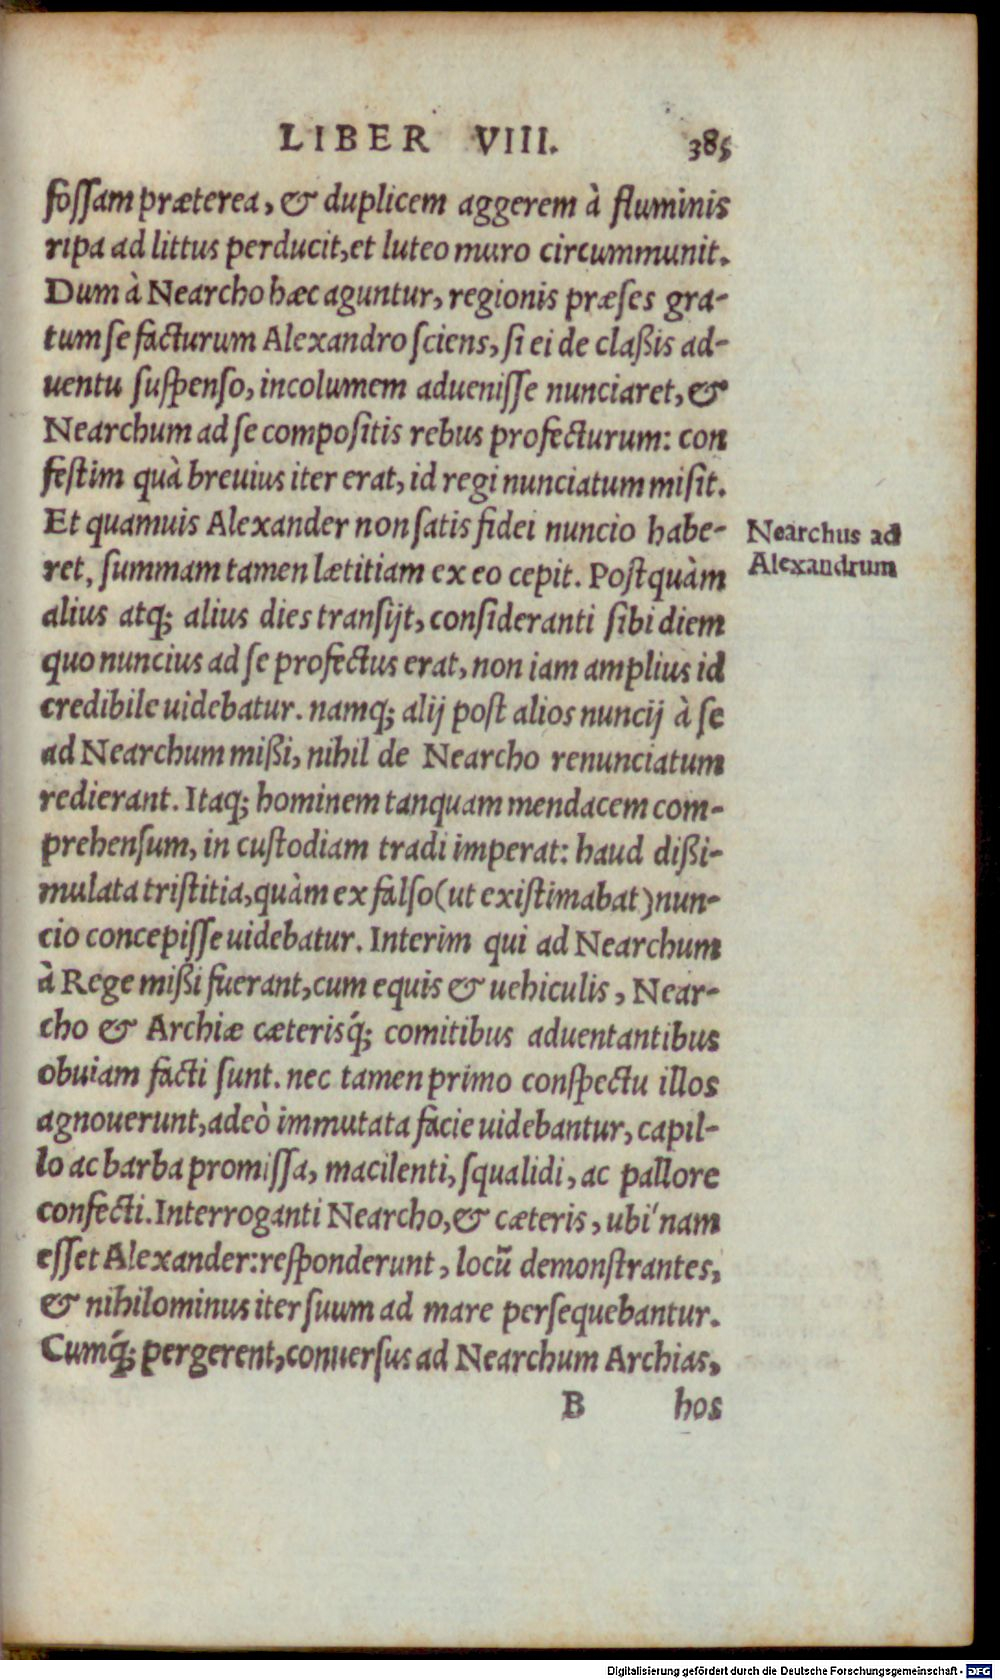 LIBER VIII. 385
fossam præterea, & duplicem aggerem à fluminis
ripa ad littus perducit, et luteo muro circummunit.
Dum à Nearcho hæc aguntur, regionis præses gra-
tum se facturum Alexandro sciens, si ei de claßis ad-
uentu suspenso, incolumem aduenisse nunciaret, &
Nearchum ad se compositis rebus profecturum: con
festim quà breuius iter erat, id regi nunciatum misit.
Et quamuis Alexander non satis fidei nuncio habe-
ret, summam tamen lætitiam ex eo cepit. Postquàm
Nearchus ad
Alexandrum
alius atq; alius dies transijt, consideranti sibi diem
quo nuncius ad se profectus erat, non iam amplius id
credibile uidebatur. namq; alij post alios nuncij à se
ad Nearchum mißi, nihil de Nearcho renunciatum
redierant. Itaq; hominem tanquam mendacem com-
prehensum, in custodiam tradi imperat: haud dißi-
mulata tristitia, quàm ex falso (ut existimabat) nun-
cio concepisse uidebatur. Interim qui ad Nearchum
à Rege mißi fuerant, cum equis & uehiculis, Near-
cho & Archiæ cæterisq́; comitibus aduentantibus
obuiam facti sunt. nec tamen primo conspectu illos
agnouerunt, adeò immutata facie uidebantur, capil-
lo ac barba promissa, macilenti, squalidi, ac pallore
confecti. Interroganti Nearcho, & cæteris, ubi'nam
esset Alexander: responderunt, locũ demonstrantes,
& nihilominus iter suum ad mare persequebantur.
Cumq́; pergerent, conuersus ad Nearchum Archias,
B hos
Digitalisierung gefördert durch die Deutsche Forschungsgemeinschaft - DFG